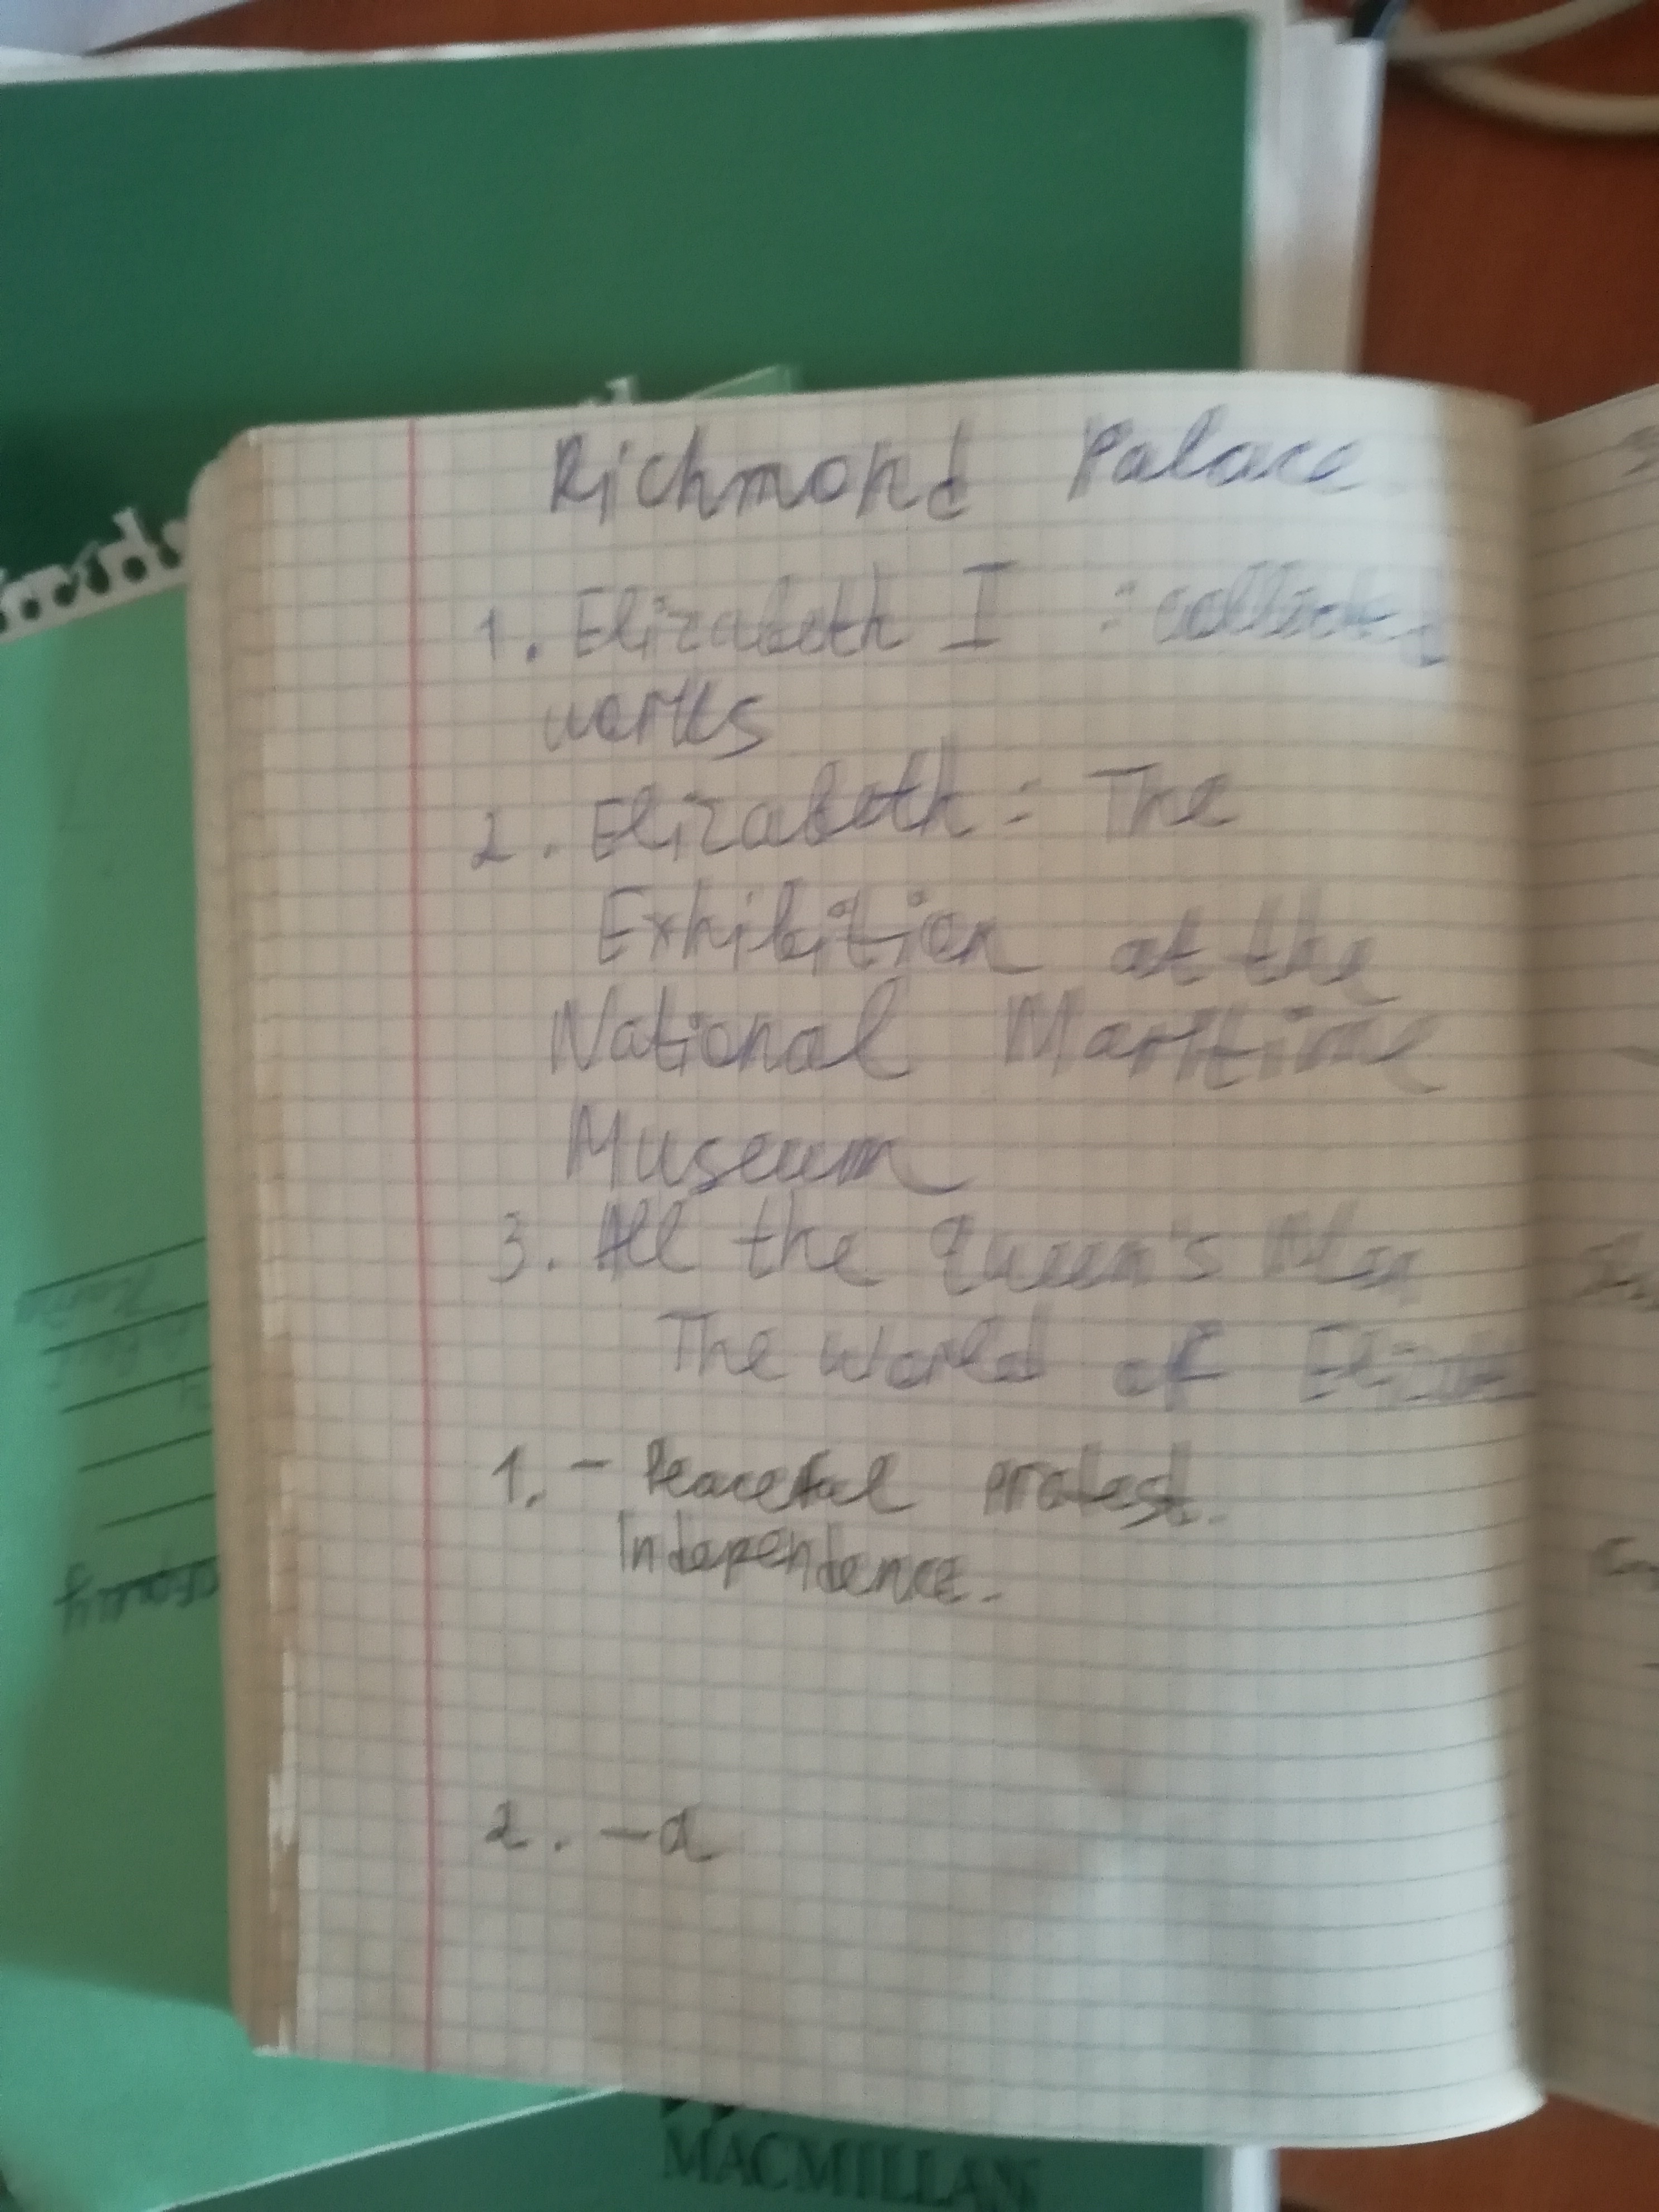 Richmond Palace
1. Elizabeth I : collected
works
2. Elizabeth: The
Exhibition at the
National Maritime
Museum
3. All the Queen's Men
The World of
1. - Peaceful protest.
Independence.
2. - a
MACMILLAN